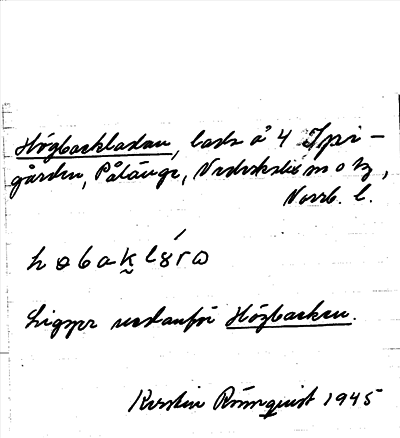 Högbackladan, lada å 4 Spi-
gården, Pålänge, Nederkalix sn o tg,
Norrb. l.
Ligger nedanför Högbacken.
Kerstin Rönnquist 1945